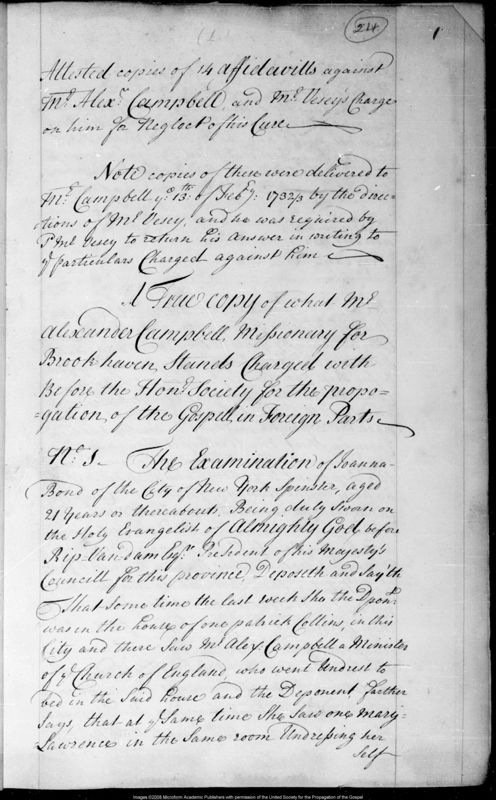 24
1
Attested copies of 14 affidavitts against
Mr. Alexr. Campbell, and Mr. Vesey's Charge
on him for Neglect of his Cure
Note copies of these were delivered to
Mr. Campbell ye. 13th. of Feby: 1732/3 by the direc=
tions of Mr. Vesey, and he was required by
sd. Mr. Vesey to return his answer in writing to
ye particulars Charged against him
A True copy of what Mr.
Alexander Campbell, Missionary for
Brookhaven, Stands Charged with
Before the Hond. Society for the propo=
=gation of the Gospel in Foreign Parts
No. 1. The Examination of Joanna
Bond of the City of New York Spinster, aged
21 Years or thereabouts, Being duly Sworn on
the Holy Evangelist of Almighty God, before
Rip Vandam Esqr. President of his Majesty's
Councill for this province, Deposeth and Say'th
That some time the last week She the Dponr.
was in the house of one patrick Collins, in this
City and there Saw Mr. Alex. Campbell a Minister
of ye Church of England who went Undrest to
bed in the Said house and the Deponent farther
Says, that at ye Same time She Saw one Mary
Lawrence in the Same room Undressing her
Self
Images ©2008 Microform Academic Publishers with permission of the United Society for the Propagation of the Gospel